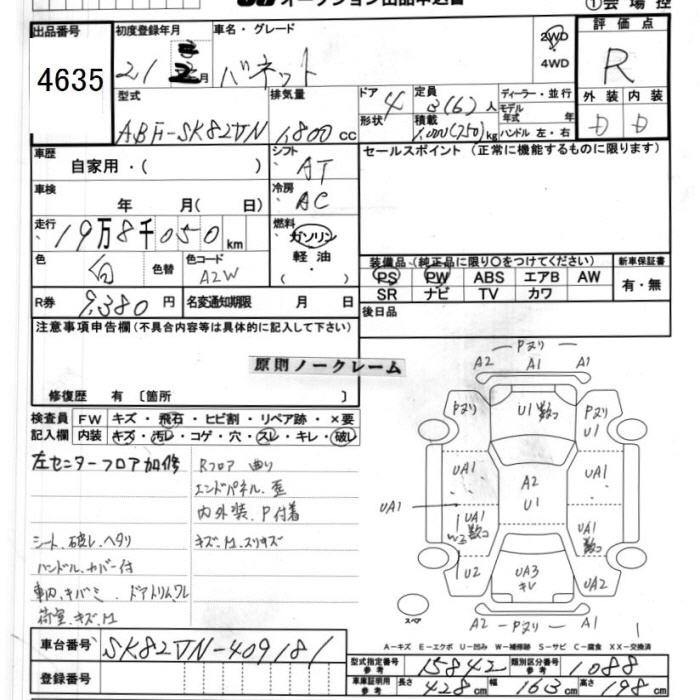 オークション出品申込書
①会場控
出品番号
4635
初度登録年月
21 2月
車名・グレード
バネット
2WD
4WD
評価点
R
外装 内装
D D
型式
ABF-SK82VN
排気量
1,800 cc
ドア 4
形状
定員
3(6)人
積載
1,000(750)kg
ディーラー・並行
モデル
年式 年
ハンドル 左・右
車歴
自家用・( )
シフト
AT
セールスポイント (正常に機能するものに限ります)
車検
年 月( 日)
冷房
AC
走行
19万8千050km
燃料
ガソリン
軽油
( ・ )
色
白
色替
色コード
A2W
装備品(純正品に限り○をつけてください)
PS PW ABS エアB AW
SR ナビ TV カワ
新車保証書
有・無
R券 9,380円
名変通知期限 月 日
後日品
注意事項申告欄(不具合内容等は具体的に記入して下さい)
原則ノークレーム
修復歴 有〔箇所 〕
検査員
記入欄
FW キズ・飛石・ヒビ割・リペア跡・×要
内装 キズ・汚レ・コゲ・穴・スレ・キレ・破レ
左センターフロア加修
Rフロア 曲り
エンドパネル.歪
内外装.P付着
シート.破レ.ヘタリ
キズ.M.スリキズ
ハンドル.カバー付
車内.キバミ.ドアトリム.ワレ
荷室.キズ.M
Pヌリ
A2 A1 A1
Pヌリ
U1 数コ
Pヌリ
U1
UA1
A2
U1
UA1
UA1
UA1
W3 数コ
UA1
数コ
U2
UA3
キV
UA2
スペア
A2 Pヌリ A1
A-キズ E-エクボ U-凹み W-補修跡 S-サビ C-腐食 XX-交換済
車台番号
SK82VN-409181
登録番号
型式指定番号
参考
15842
類別区分番号
参考
1088
車庫証明用
参考
長さ 428cm 幅 163cm 高さ 198cm